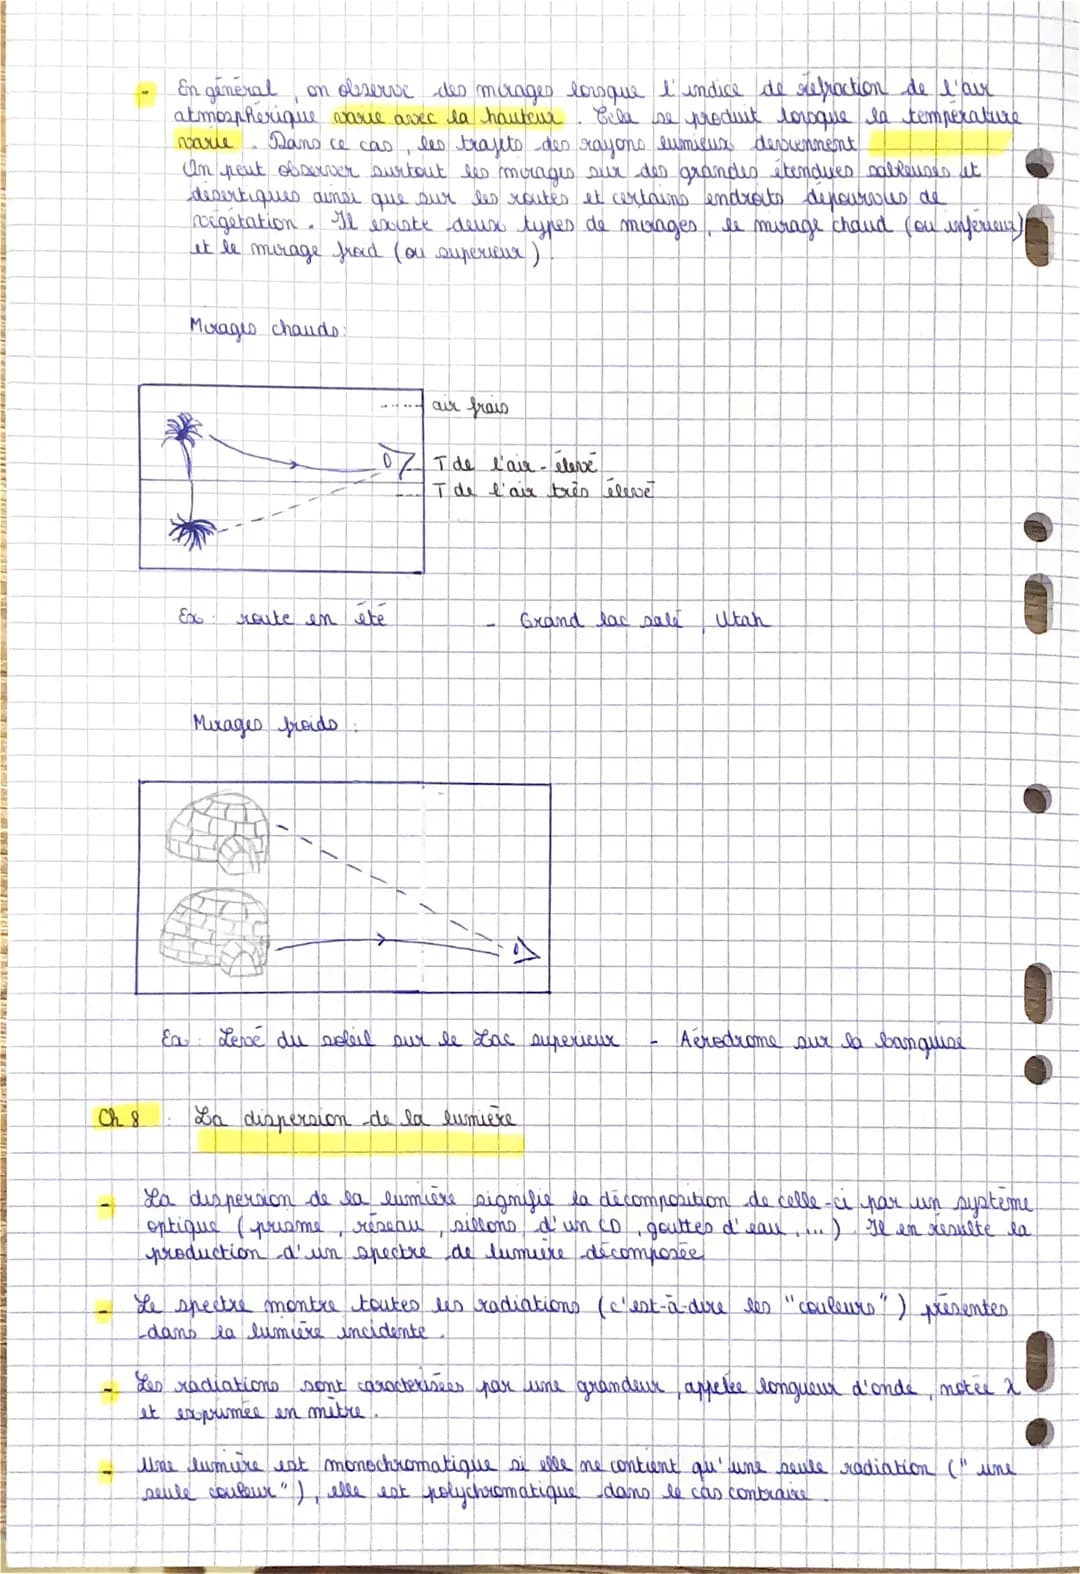 - En général, on observe des mirages lorsque l'indice de réfraction de l'air
atmosphérique varie avec la hauteur. Cela se produit lorsque la température
varie. Dans ce cas, les trajets des rayons lumieux deviennent
On peut observer surtout les mirages sur des grandes étendues sableuses et
désertiques ainsi que sur les routes et certains endroits dépourvus de
végétation. Il existe deux types de mirages, le mirage chaud (ou inférieur)
et le mirage froid (ou superieur).
Mirages chauds:
air frais
T de l'air - élevé
T de l'air très élevé
Ex: route en été - Grand lac salé, Utah
Mirages froids:
Ex: Levé du soleil sur le Lac superieur - Aérodrome sur la banquise
Ch 8 : La dispersion de la lumière
- La dispersion de la lumière signifie la décomposition de celle-ci par un système
optique (prisme, réseau, sillons d'un CD, gouttes d'eau, ...). Il en résulte la
production d'un spectre de lumière décomposée
- Le spectre montre toutes les radiations (c'est-à-dire les "couleurs") présentes
dans la lumière incidente.
- Les radiations sont caractérisées par une grandeur, appelée longueur d'onde, notée λ
et exprimée en mètre.
- Une lumière est monochromatique si elle ne contient qu'une seule radiation ("une
seule couleur"), elle est polychromatique dans le cas contraire.